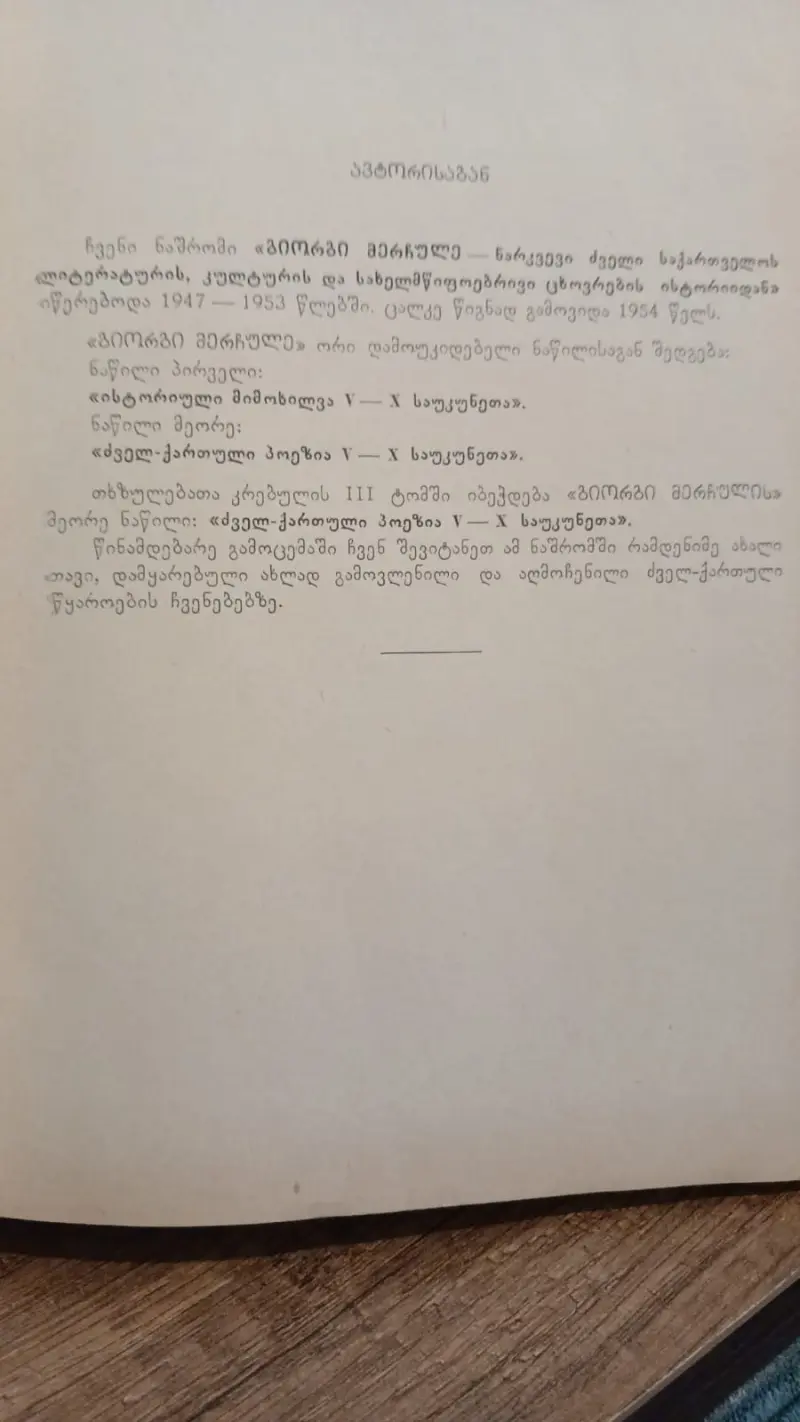 ავტორისაგან
ჩვენი ნაშრომი «გიორგი მერჩულე — ნარკვევი ძველი საქართველოს
ლიტერატურის, კულტურის და სახელმწიფოებრივი ცხოვრების ისტორიიდან»
იწერებოდა 1947 — 1953 წლებში. ცალკე წიგნად გამოვიდა 1954 წელს.
«გიორგი მერჩულე» ორი დამოუკიდებელი ნაწილისაგან შედგება:
ნაწილი პირველი:
«ისტორიული მიმოხილვა V — X საუკუნეთა».
ნაწილი მეორე:
«ძველ-ქართული პოეზია V — X საუკუნეთა».
თხზულებათა კრებულის III ტომში იბეჭდება «გიორგი მერჩულის»
მეორე ნაწილი: «ძველ-ქართული პოეზია V — X საუკუნეთა».
წინამდებარე გამოცემაში ჩვენ შევიტანეთ ამ ნაშრომში რამდენიმე ახალი
თავი, დამყარებული ახლად გამოვლენილი და აღმოჩენილი ძველ-ქართული
წყაროების ჩვენებებზე.